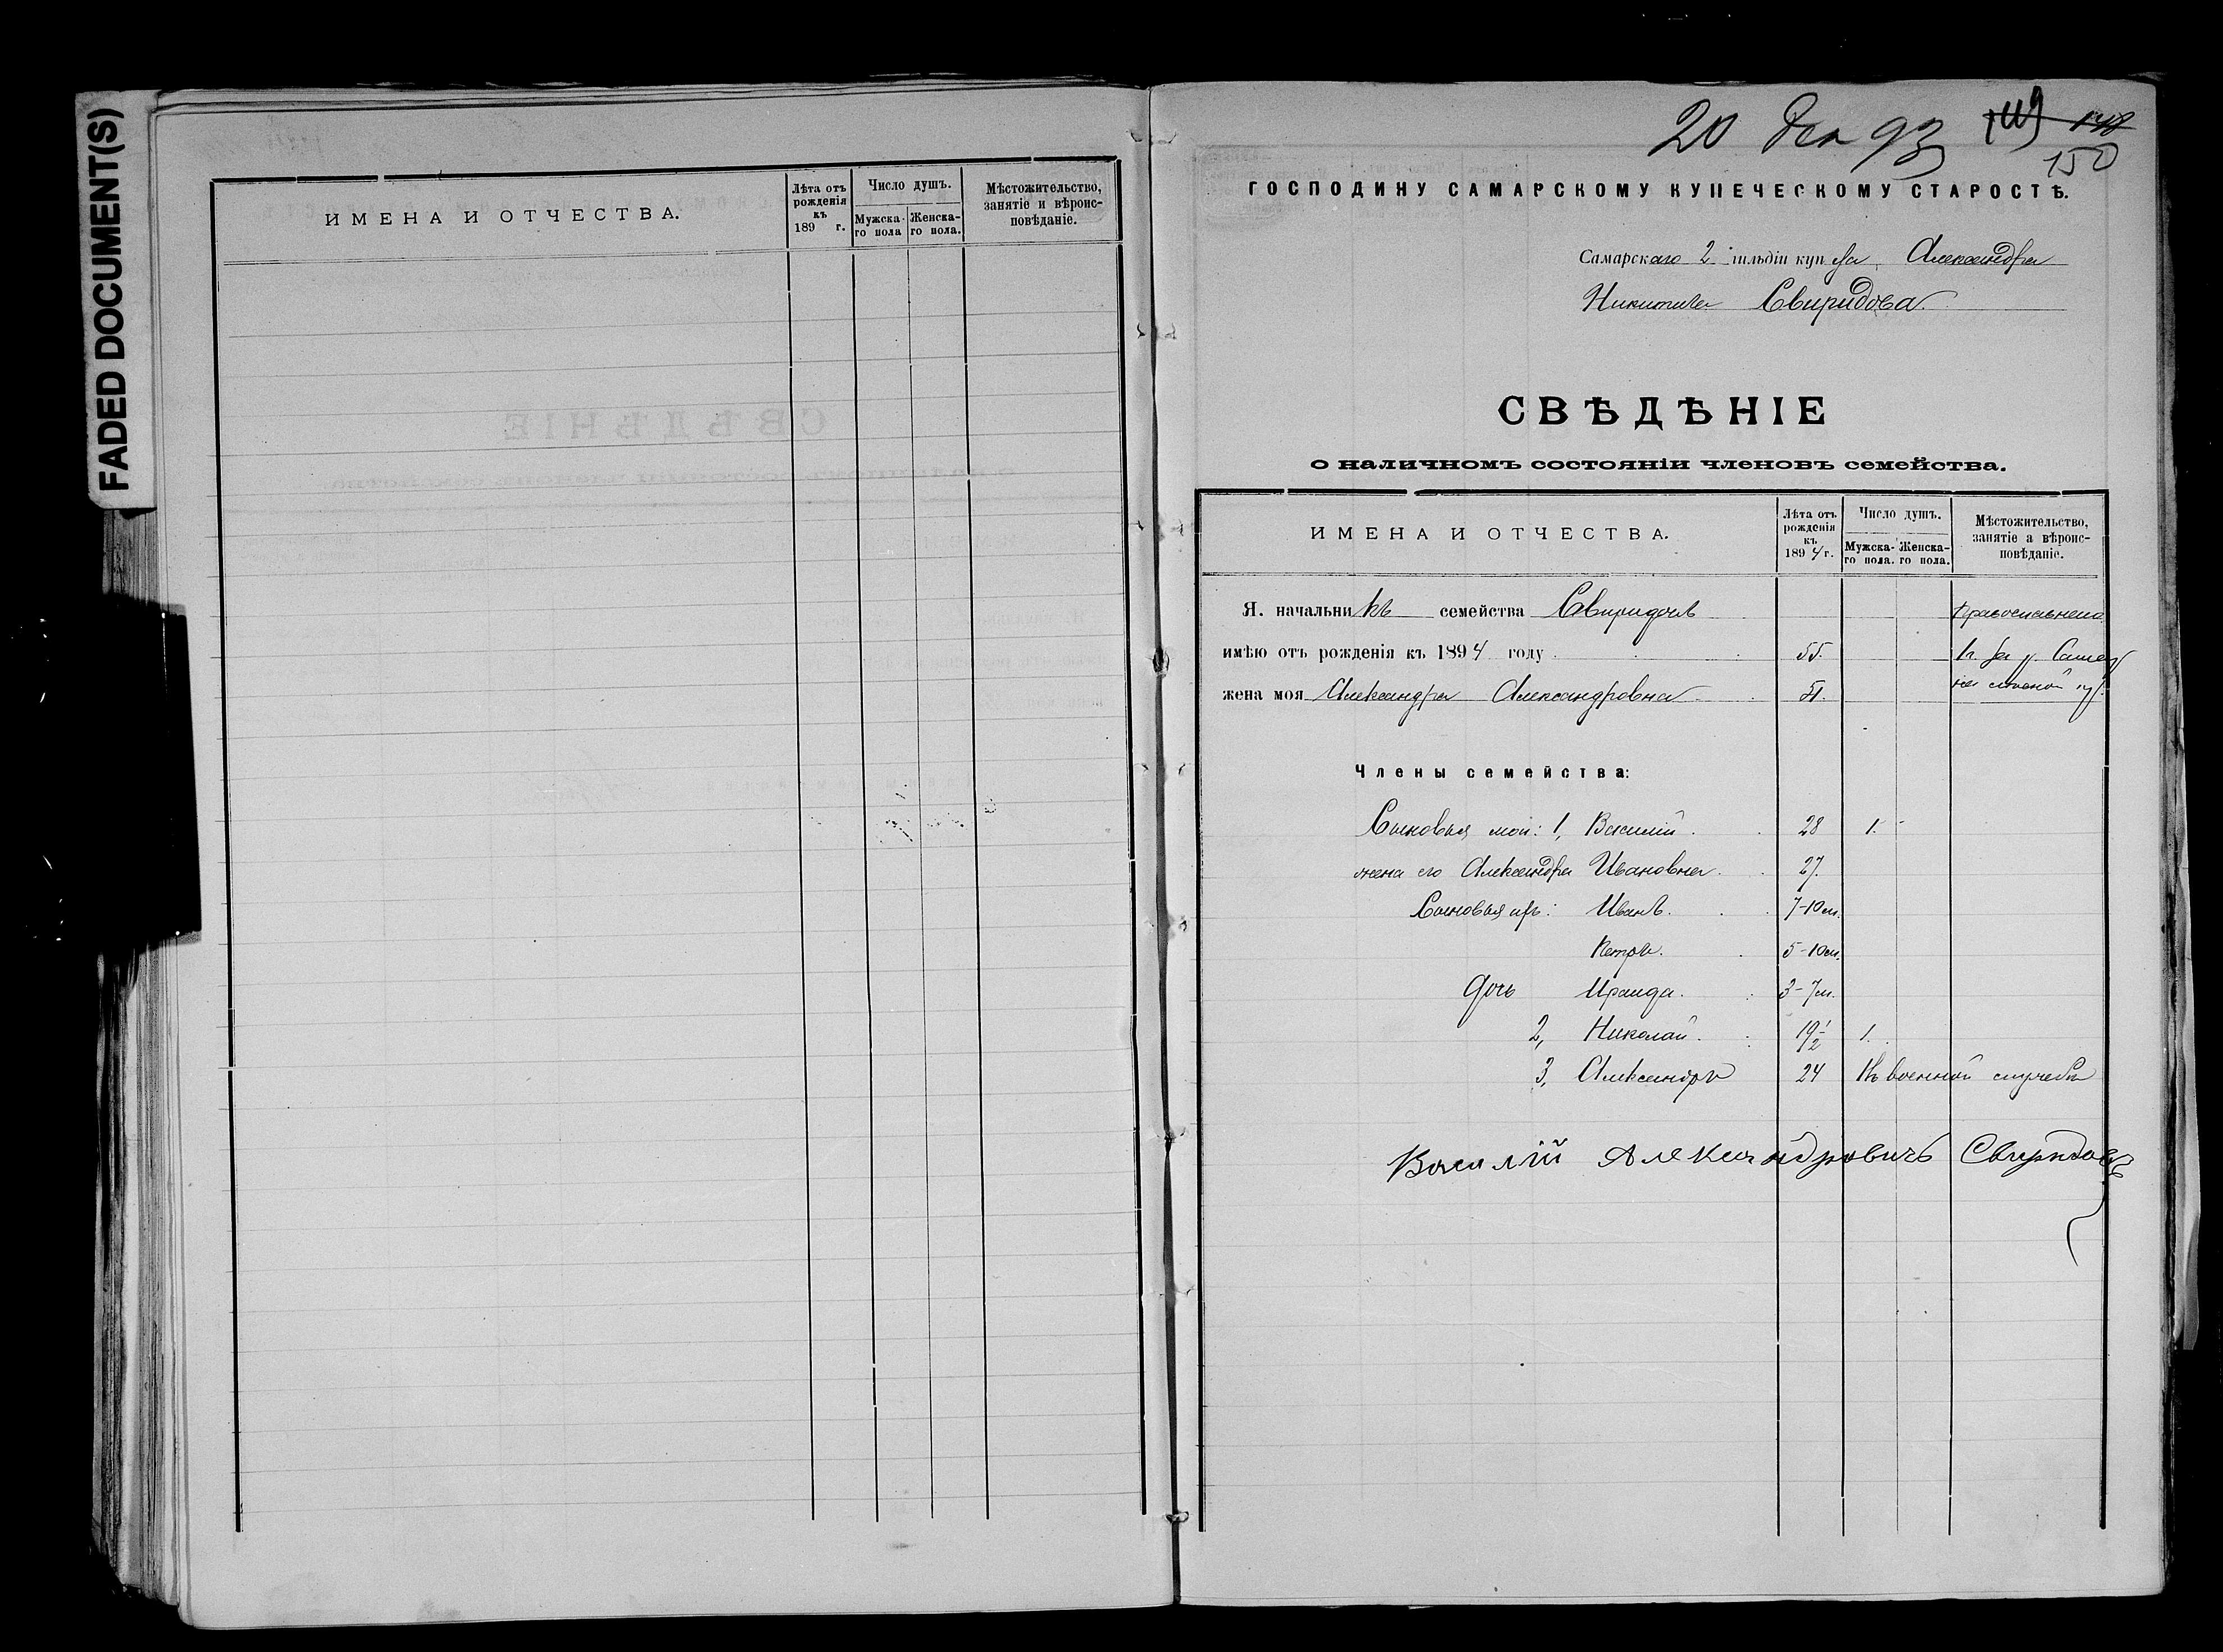 FADED DOCUMENT(S)
ИМЕНА И ОТЧЕСТВА.
Лѣта отъ рожденія къ 189 г.
Число душъ.
Мужска-го пола
Женска-го пола.
Мѣстожительство, занятіе и вѣроис-повѣданіе.
20 Дек 93
148
150
ГОСПОДИНУ САМАРСКОМУ КУПЕЧЕСКОМУ СТАРОСТѢ.
Самарскаго 2 гильдіи купца Александра
Никитича Свиридова.
СВѢДѢНІЕ
о наличномъ состояніи членовъ семейства.
ИМЕНА И ОТЧЕСТВА.
Лѣта отъ рожденія къ 1894 г.
Число душъ.
Мужска-го пола.
Женска-го пола.
Мѣстожительство, занятіе а вѣроис-повѣданіе.
Я. начальникъ семейства Свиридовъ
имѣю отъ рожденія къ 1894 году 55.
жена моя Александра Александровна 51.
Члены семейства:
Сыновья мои: 1, Василій 28 1.
жена его Александра Ивановна. 27.
Сыновья ихъ: Иванъ. 7-10 м.
Петръ. 5-10 м.
Дочь Ираида. 3-7 м.
2, Николай. 19 1/2 1.
3, Александръ 24 Въ военной службѣ
Василій Александровичъ Свиридовъ